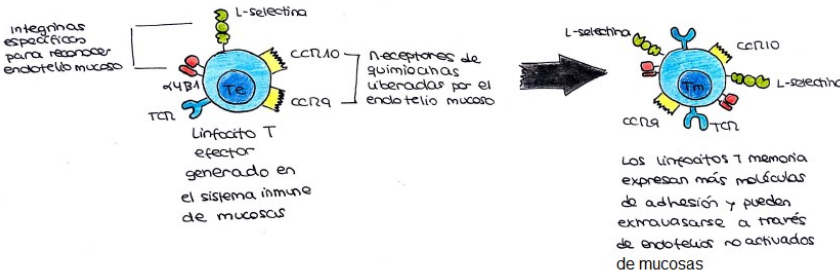 L-selectina
integrinas
específicas
para reconocer
endotelio mucoso
α4β1
TCR
Te
CCR10
CCR9
Receptores de
quimiocinas
liberadas por el
endotelio mucoso
Linfocito T
efector
generado en
el sistema inmune
de mucosas
L-selectina
CCR10
Tm
L-selectina
CCR9
TCR
Los linfocitos T memoria
expresan más moléculas
de adhesión y pueden
extravasarse a través
de endotelios no activados
de mucosas